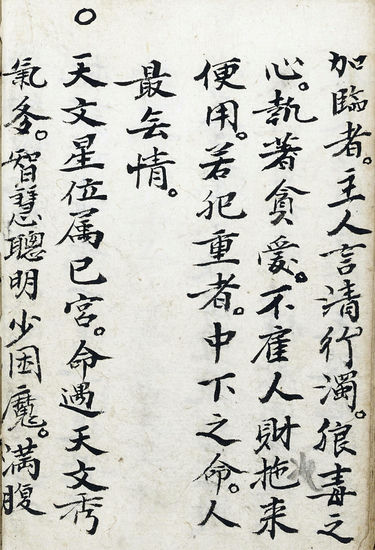 加臨者。主人言清行濁。狼毒之
心。執著貪愛。不產人財拖来
便用。若犯重者。中下之命。人
最無情。
○
天文星位属巳宮。命遇天文秀
氣多。智慧聰明少困魔。滿腹